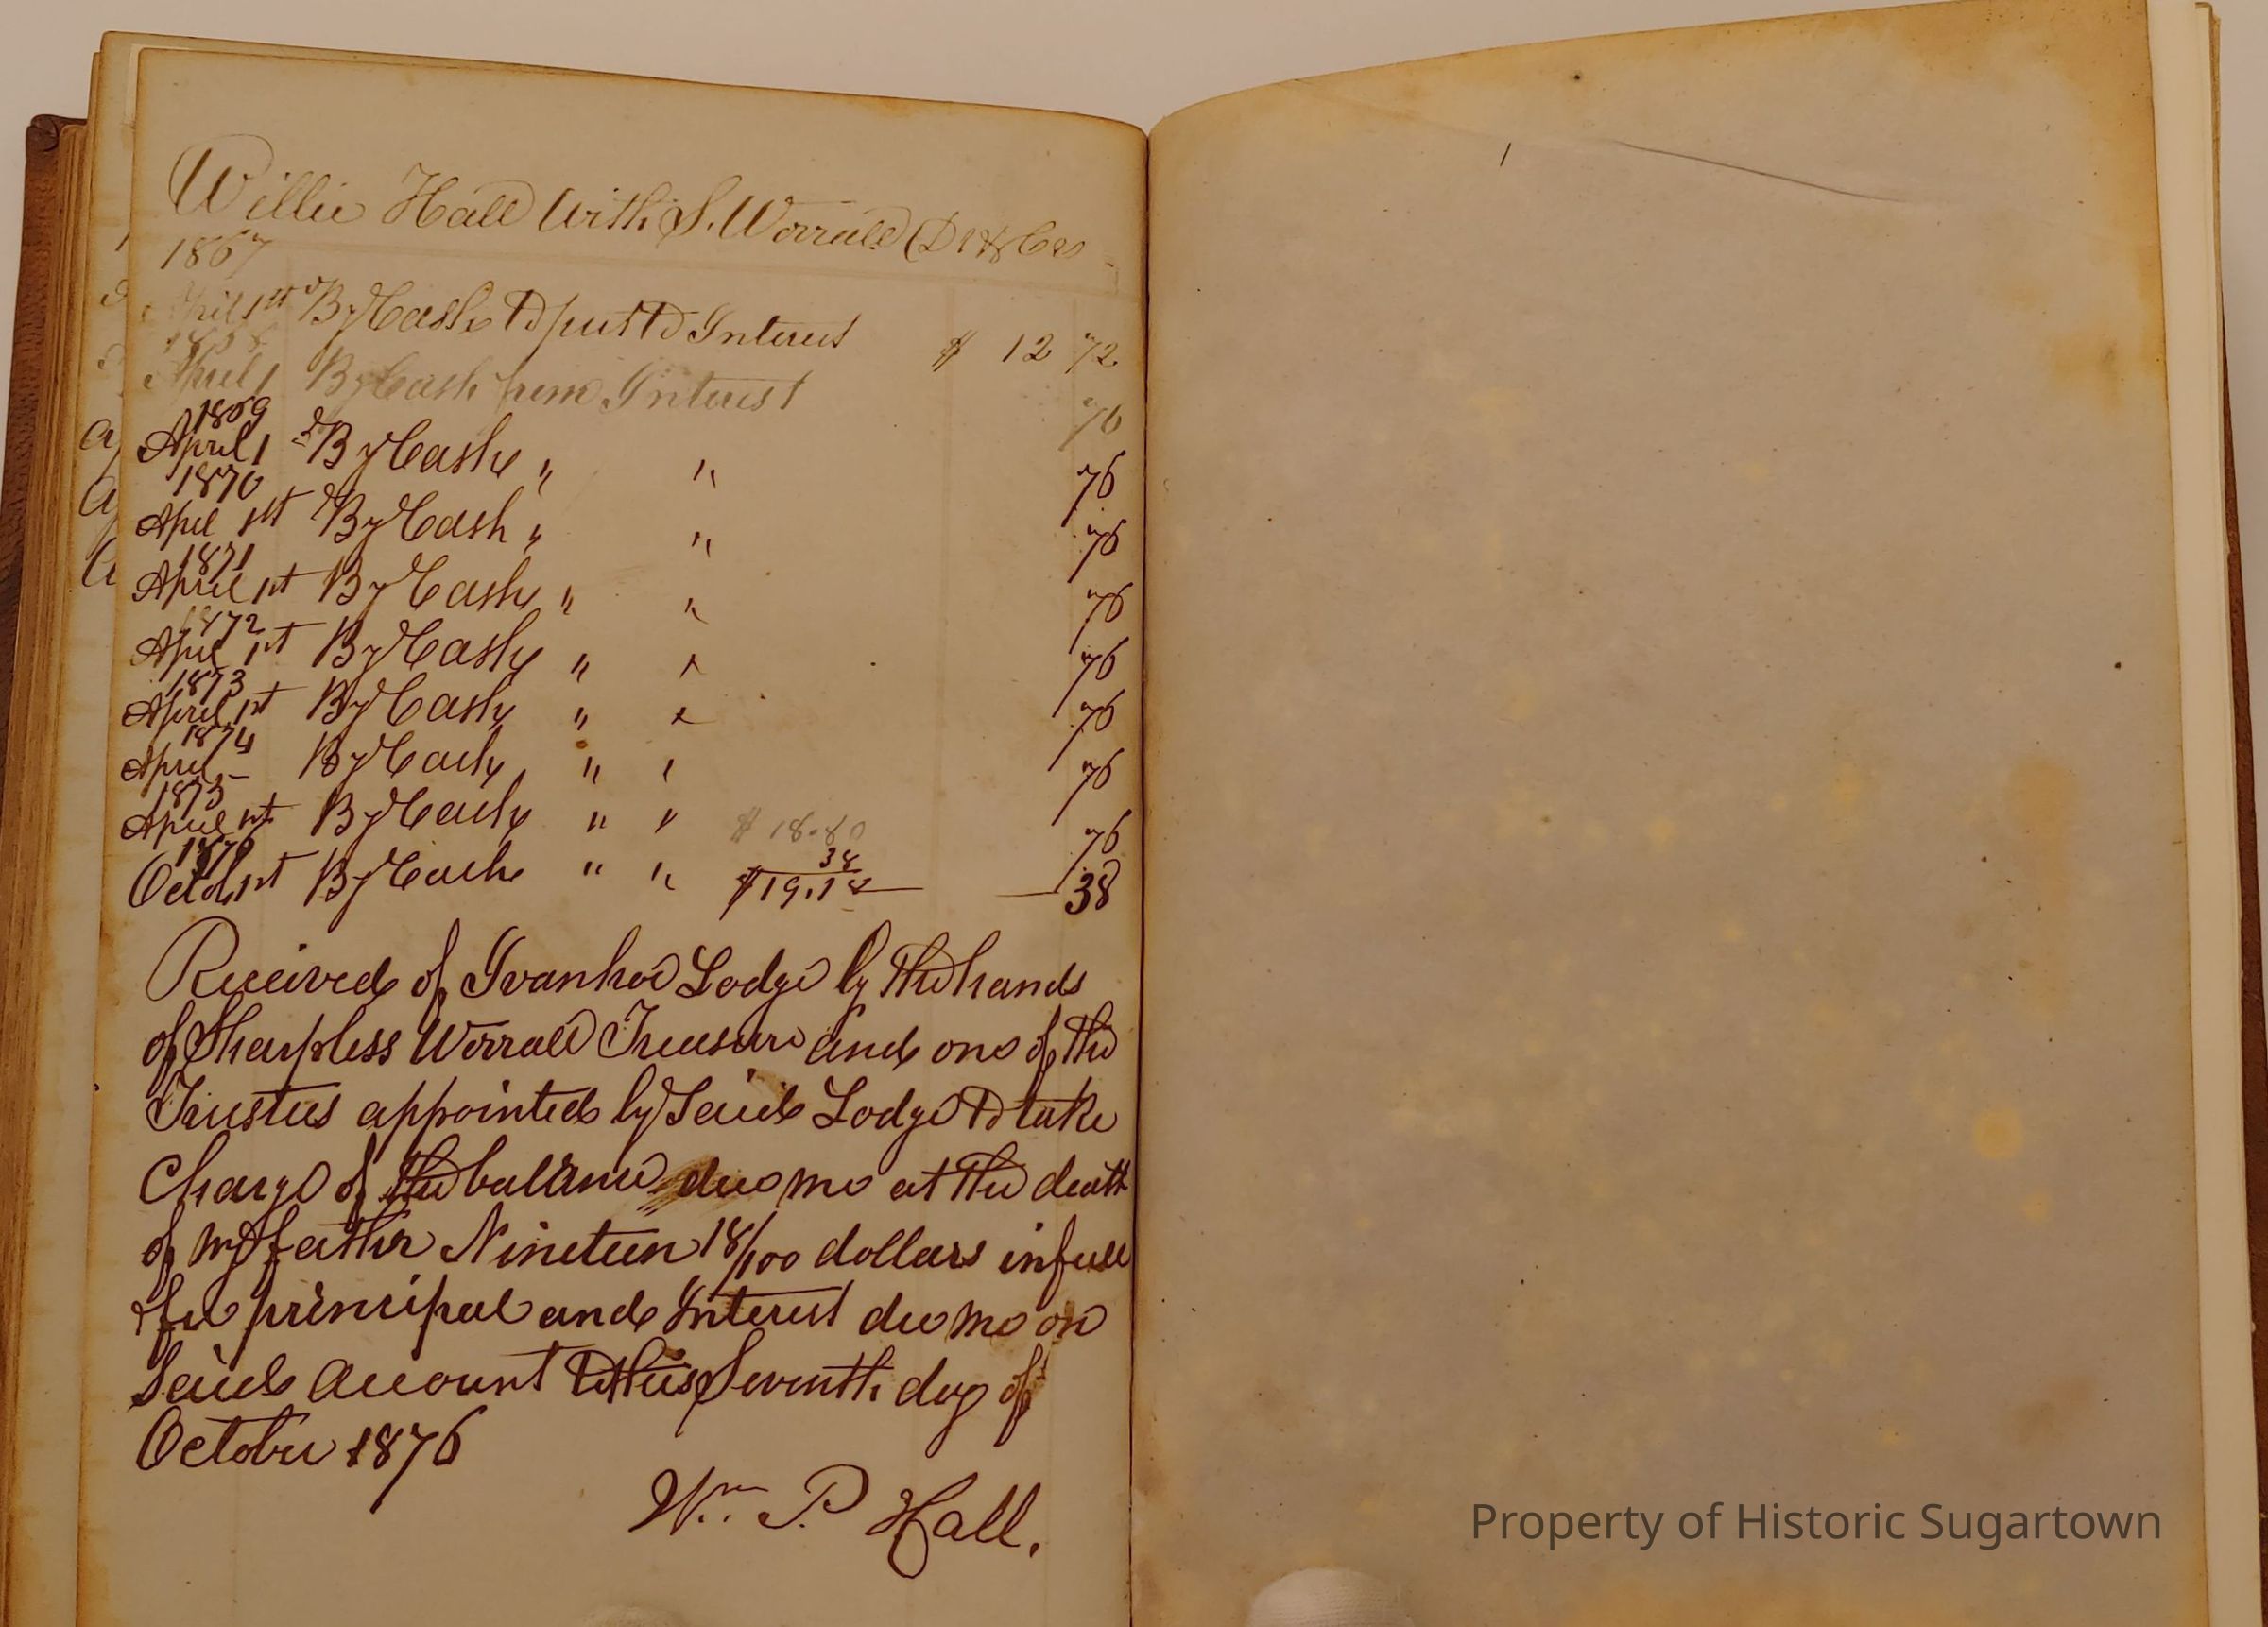 Willie Hall With S. Worrall Dr & Cr
1867
April 1st By Cash to put to Interest $ 12 72
1868
April 1 By Cash from Interest 76
1869
April 1 By Cash " " 76
1870
April 1st By Cash " " 76
1871
April 1st By Cash " " 76
1872
April 1st By Cash " " 76
1873
April 1st By Cash " " 76
1874
April - By Cash " " 76
1875
April 1st By Cash " " $ 18.80 76
1876 38
Octob 1st By Cash " " $19.18 38
Received of Ivanhoe Lodge by the hands
of Sharpless Worrall Treasure and one of the
Trustees appointed by Said Lodge to take
Charge of the balance due me at the death
of my father Nineteen 18/100 dollars in full
for principal and Interest due me on
Said account this Seventh day of
October 1876
Wm P Hall.
Property of Historic Sugartown